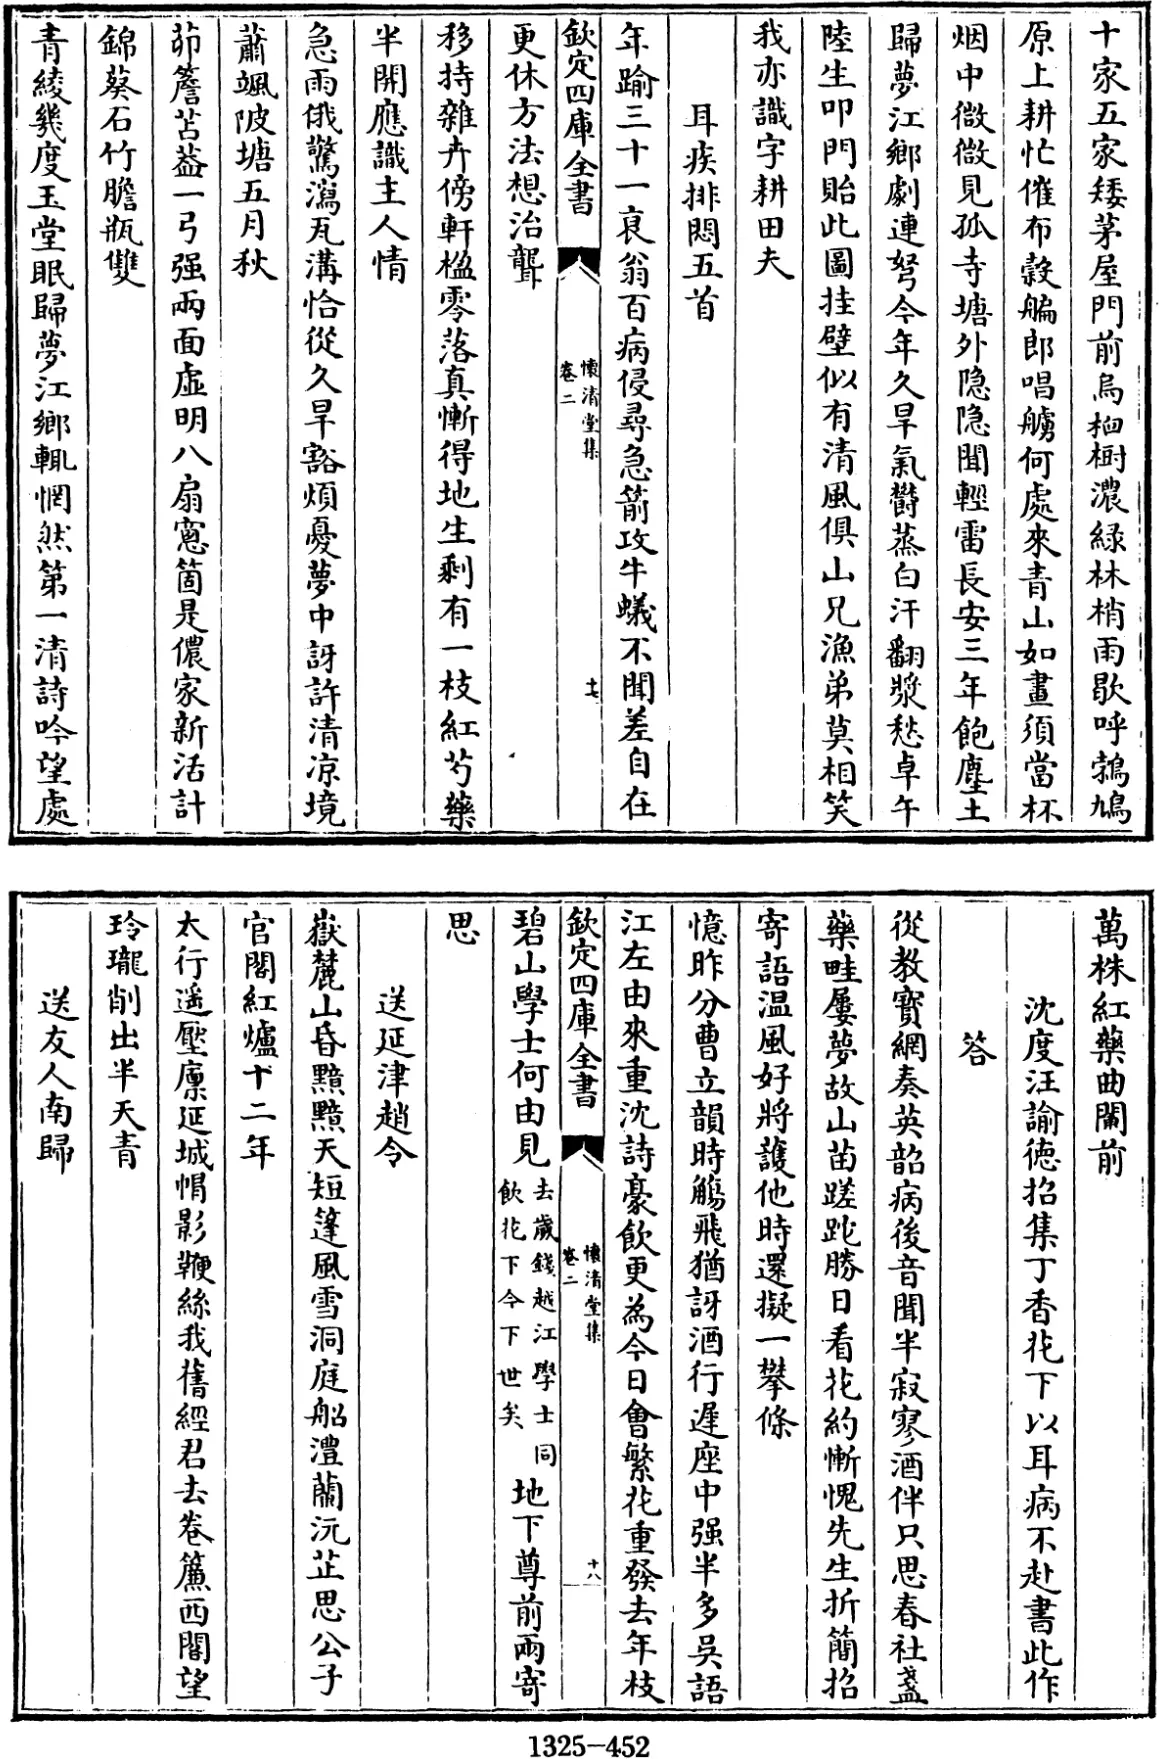 十家五家矮茅屋門前烏桕樹濃緑林梢雨歇呼鵓鳩
原上耕忙催布穀艑郎唱艣何處來青山如畫須當杯
烟中微微見孤寺塘外隐隐聞輕雷長安三年飽塵土
歸夢江鄉劇連弩今年久旱氣欝蒸白汗翻漿愁卓午
陸生叩門貽此圖挂壁似有清風俱山兄漁弟莫相笑
我亦識字耕田夫
耳疾排悶五首
年踰三十一衰翁百病侵尋急箭攻牛蟻不聞差自在
欽定四庫全書
懷清堂集
卷二
十七
更休方法想治聾
移持雜卉傍軒楹零落真慚得地生剩有一枝紅芍藥
半開應識主人情
急雨俄驚瀉瓦溝恰從久旱豁煩憂夢中訝許清凉境
蕭颯陂塘五月秋
茆簷苫葢一弓强兩面虛明八扇窻箇是儂家新活計
錦葵石竹膽瓶雙
青綾幾度玉堂眠歸夢江鄉輒惘然第一清詩吟望處
萬株紅藥曲闌前
沈度汪諭德招集丁香花下以耳病不赴書此作
答
從教寳網奏英韶病後音聞半寂寥酒伴只思春社盞
藥畦屢夢故山苗蹉跎勝日看花約慚愧先生折簡招
寄語温風好將護他時還擬一攀條
憶昨分曹立韻時觴飛猶訝酒行遲座中强半多吳語
江左由來重沈詩豪飲更為今日會繁花重發去年枝
欽定四庫全書
懷清堂集
卷二
十八
碧山學士何由見去歲錢越江學士同飲花下今下世矣地下尊前兩寄
思
送延津趙令
嶽麓山昏黯黯天短篷風雪洞庭船澧蘭沅芷思公子
官閣紅爐十二年
太行遥壓廩延城帽影鞭絲我舊經君去卷簾西閣望
玲瓏削出半天青
送友人南歸
1325-452